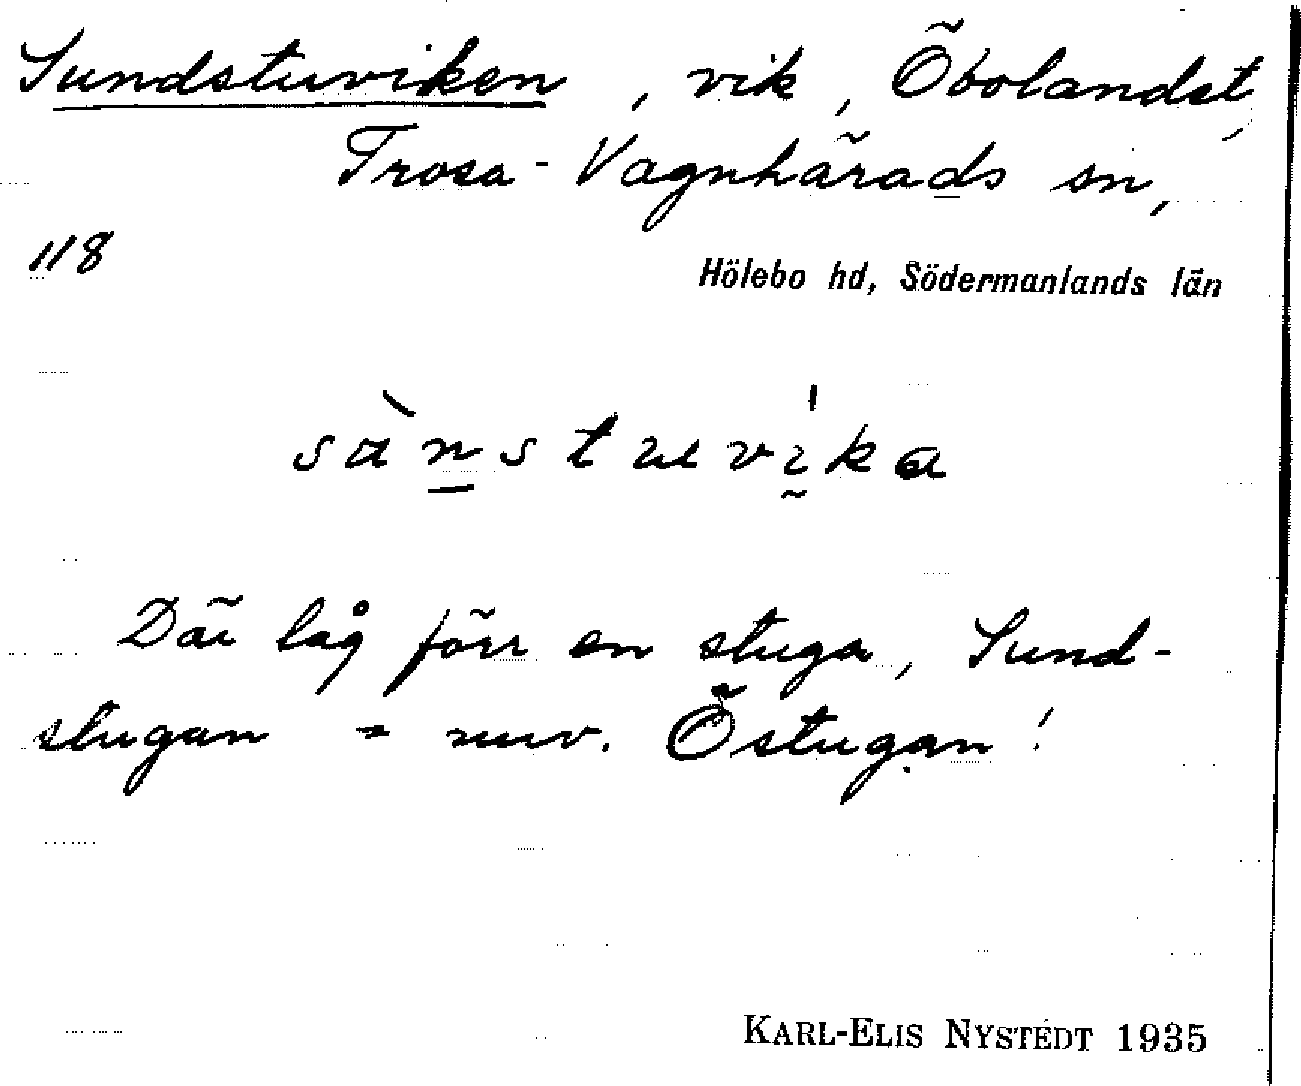 Sundstuviken, vik, Öbolandet,
Trosa-Vagnhärads sn,
118
Hölebo hd, Södermanlands län
sànstuvḭka
Där låg förr en stuga, Sund-
stugan = nuv. Östugan!
KARL-ELIS NYSTEDT 1935